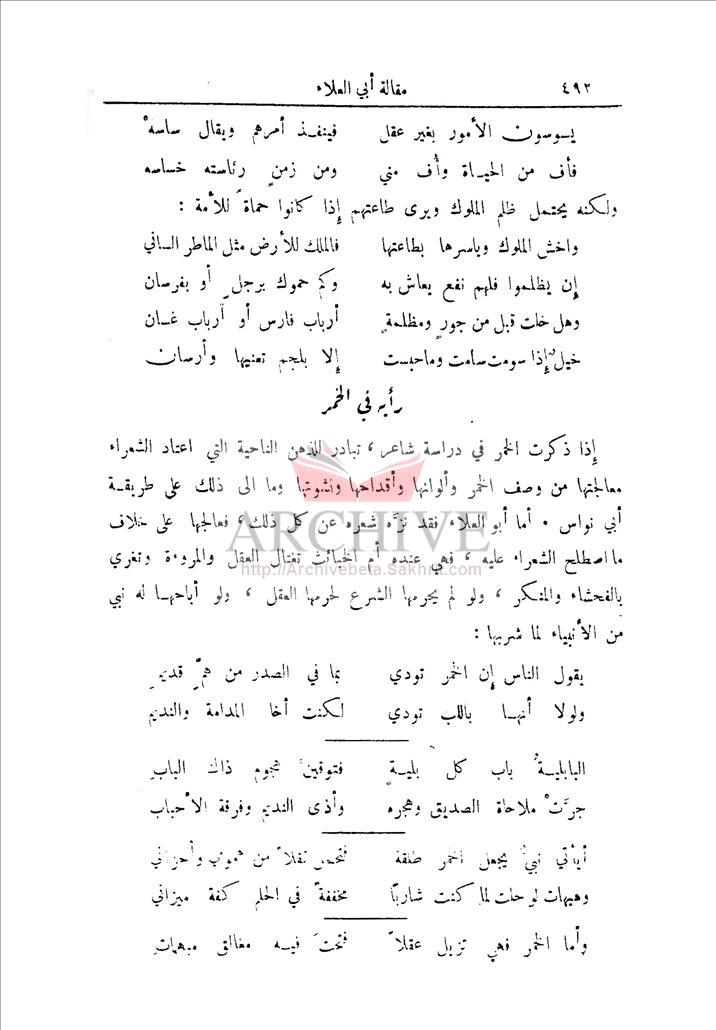 ٤٩٢ مقالة أبي العلاء
يسوسون الأمور بغير عقل فينفــذ أمرهم ويقال ساسهْ
فأف من الحيــاة وأُف مني ومن زمنٍ رئاسته خساسه
ولكنه يحتمل ظلم الملوك ويرى طاعتهم إذا كانوا حماةً للأمة :
واخش الملوك وياسرها بطاعتها فالملك للأرض مثل الماطر الساني
إن يظلموا فلهم نفع يعاش به وكم حموك برجلٍ أو بفرسان
وهل خلت قبل من جورٍ ومظلمةٍ أرباب فارس أو أرباب غسان
خيل إذا سومت سامت وما حبست إلا بلجم تعنيها وأرسان
رأيه في الخمر
إذا ذكرت الخمر في دراسة شاعر ، تبادر للذهن الناحية التي اعتاد الشعراء
معالجتها من وصف الخمر وألوانها وأقداحها ونشوتها وما الى ذلك على طريقــة
أبي نواس . أما أبو العلاء فقد نزَّه شعره عن كل ذلك ، فعالجها على خلاف
ما اصطلح الشعراء عليه ، فهي عنده أم الخبائث تغتال العقل والمروءة وتغري
بالفحشاء والمنكر ، ولو لم يحرمها الشرع لحرمها العقل ، ولو أباحهــا له نبي
من الأنبياء لما شربها :
يقول الناس إن الخمر تودي بما في الصدر من همٍّ قديمِ
ولولا أنهــا باللب تودي لكنت أخا المدامة والنديم
البابليــةُ باب كل بليــةٍ فتوقينَّ هجوم ذاك البابِ
جرَّتْ ملاحاة الصديق وهجره وأذى النديم وفرقة الأحباب
أيأتي نبيٌّ يجعل الخمر طلقة فتحمل ثقلاً من همومي وأحزاني
وهيهات لو حلت لما كنت شارباً مخففةً في الحلم كفة ميزاني
وأما الخمر فهي تزيل عقلاً فتحتَ فيــه مغالق مبهمات
ARCHIVE
http://Archivebeta.Sakhrit.com